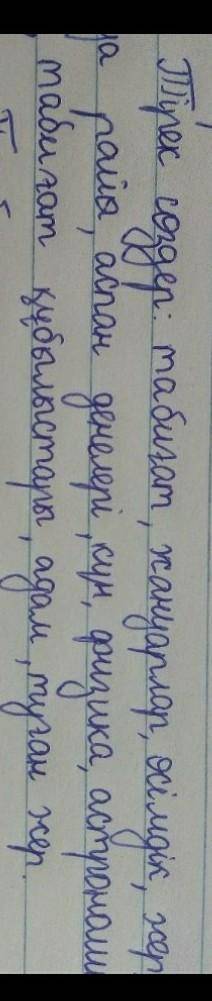 Тірек сөздер: табиғат, жануарлар, өсімдік, жер
райы, аспан денелері, күн, физика, астрономи
табиғат құбылыстары, адам, туған жер.